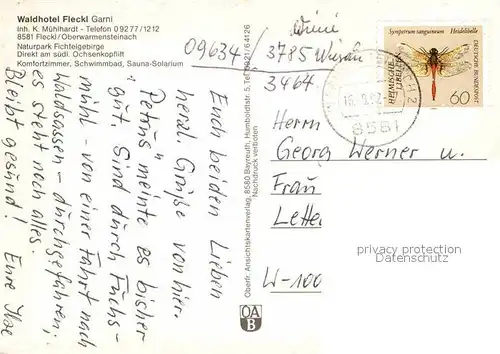 Waldhotel Fleckl Garni
Inh. K. Mühlhardt - Telefon 09277/1212
8581 Fleckl/Oberwarmensteinach
Naturpark Fichtelgebirge
Direkt am südl. Ochsenkopflift
Komfortzimmer, Schwimmbad, Sauna-Solarium
Euch beiden Lieben
herzl. Grüße von hier.
"Petrus" meinte es bisher
gut. Sind durch Fuchs-
mühl - von einer Fahrt nach
Waldsassen - durchgefahren;
es steht noch alles.
Bleibt gesund! Eure Ilse
Oberfr. Ansichtskartenverlag, 8580 Bayreuth, Humboldtstr. 5, Tel. 0921/64126
Nachdruck verboten
OA
B
09634/
3785
3464
Sympetrum sanguineum Heidelibelle
HEIMISCHE
LIBELLEN
DEUTSCHE BUNDESPOST
60
8581
Herrn
Georg Werner u.
Frau
W-100
privacy protection
www.ansichtskarten-center.de